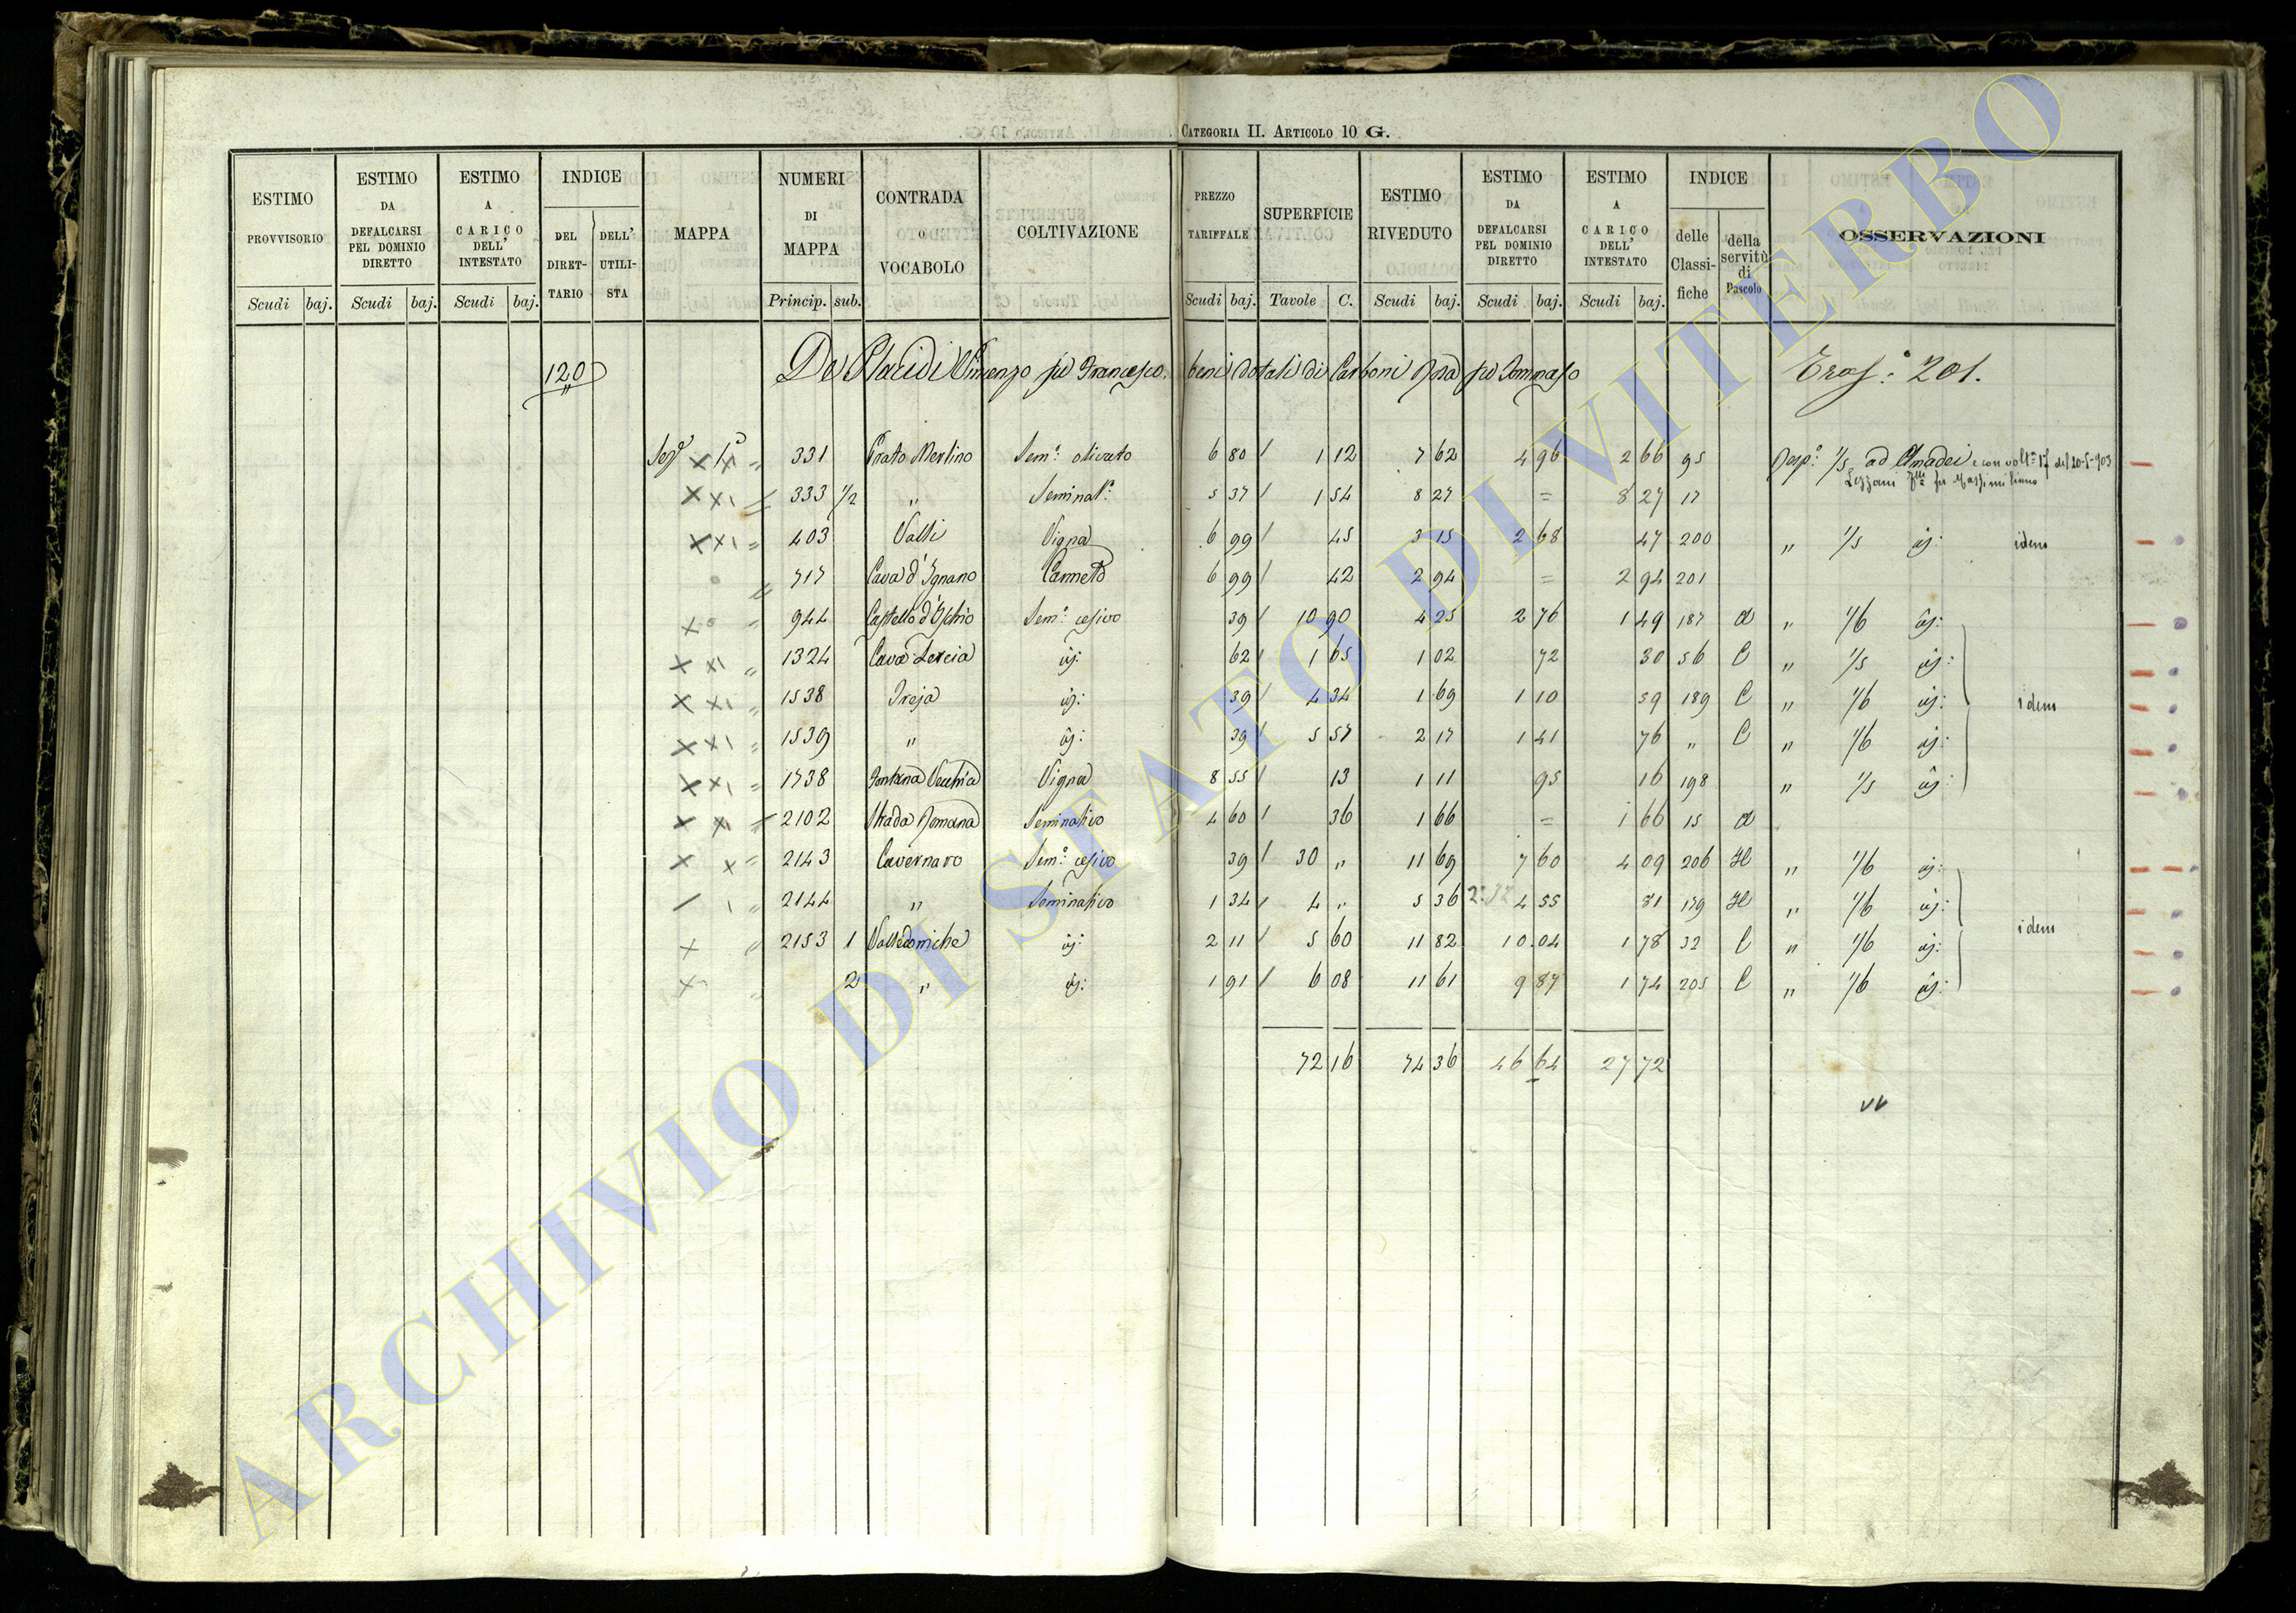 CATEGORIA II. ARTICOLO 10 G.
ESTIMO PROVVISORIO
ESTIMO DA DEFALCARSI PEL DOMINIO DIRETTO
ESTIMO A CARICO DELL' INTESTATO
INDICE
DEL DIRET-TARIO
DELL' UTILI-STA
MAPPA
NUMERI DI MAPPA
CONTRADA O VOCABOLO
COLTIVAZIONE
PREZZO TARIFFALE
SUPERFICIE
ESTIMO RIVEDUTO
ESTIMO DA DEFALCARSI PEL DOMINIO DIRETTO
ESTIMO A CARICO DELL' INTESTATO
INDICE
delle Classi-fiche
della servitù di Pascolo
OSSERVAZIONI
Scudi baj. Scudi baj. Scudi baj. Princip. sub. Scudi baj. Tavole C. Scudi baj. Scudi baj. Scudi baj.
120 De Placidi Vincenzo fu Francesco, beni dotali di Carboni Rosa fu Tommaso Trasº: 201.
331 Prato Merlino Sem.º olivato 6 80 1 12 7 62 4 96 2 66 95 Resp.º 1/5 ad Amadei
333 1/2 " Seminat.º 5 37 1 54 8 27 = 8 27 17
403 Valli Vigna 6 99 45 3 15 2 68 47 200 " 1/5 idem
717 Cava d'Ignano Canneto 6 99 42 2 94 = 2 94 201
944 Castello d'Ischio Sem.º cesivo 39 10 90 4 25 2 76 1 49 187 a " 1/6
1324 Cava Lercia 62 1 65 1 02 72 30 56 C " 1/5
1538 Treja 39 4 34 1 69 1 10 59 189 C " 1/6 idem
1539 " 39 5 57 2 17 1 41 76 " C " 1/6
1738 Fontana Vecchia Vigna 8 55 13 1 11 95 16 198 " 1/5
2102 Strada Romana Seminativo 4 60 36 1 66 = 1 66 15 a
2143 Cavernaro Sem.º cesivo 39 30 " 11 69 7 60 4 09 206 H " 1/6
2144 " Seminativo 1 34 4 " 5 36 4 55 81 179 H " 1/6
2153 1 Valledomiche 2 11 5 60 11 82 10 04 1 78 32 C " 1/6 idem
2 " 1 91 6 08 11 61 9 87 1 74 205 C " 1/6
72 16 74 36 46 64 27 72
ARCHIVIO DI STATO DI VITERBO